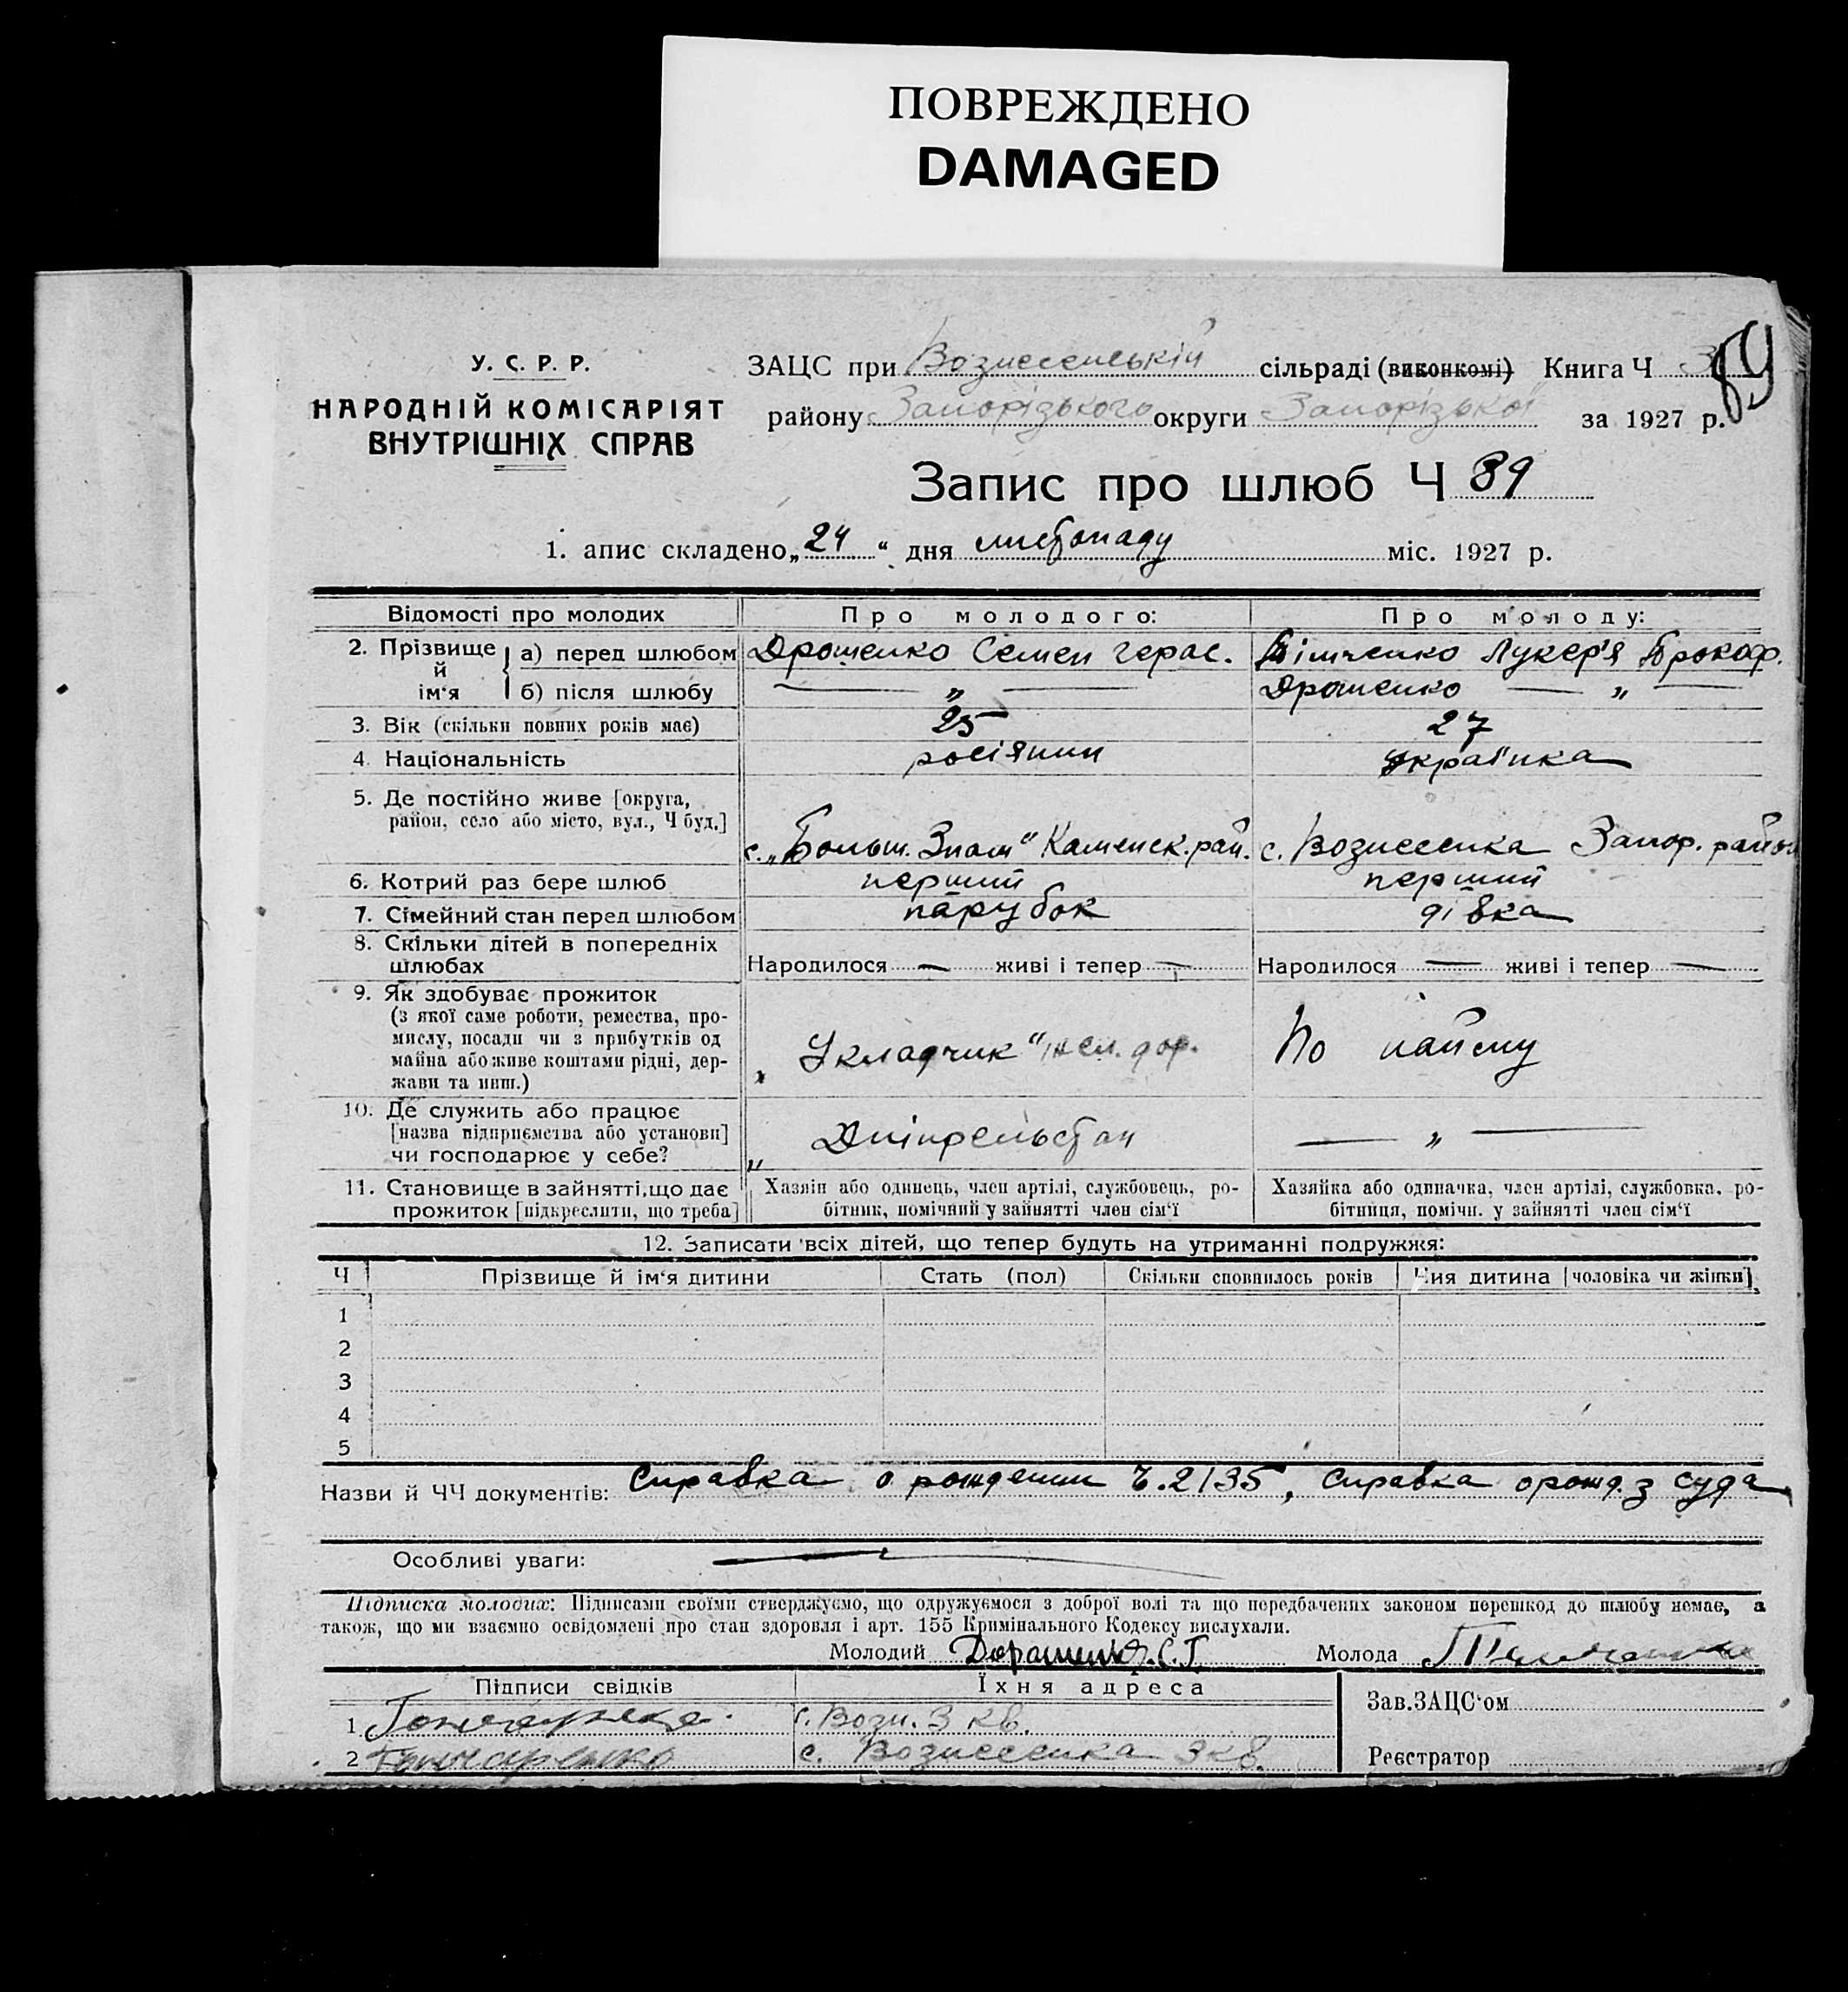 ПОВРЕЖДЕНО
DAMAGED
89
У. С. Р. Р.
НАРОДНІЙ КОМІСАРІЯТ
ВНУТРІШНІХ СПРАВ
ЗАЦС при Вознесенській сільраді (виконкомі) Книга Ч 3
району Запорізького округи Запорізької за 1927 р.
Запис про шлюб Ч 89
1. апис складено „24“ дня листопаду міс. 1927 р.
Відомості про молодих Про молодого: Про молоду:
2. Прізвище й ім‘я а) перед шлюбом Дрошенко Семен Герас. Лукер'я Прокоф.
б) після шлюбу — „ — Дрошенко — „ —
3. Вік (скільки повних років має) 25 27
4. Національність росіянин українка
5. Де постійно живе [округа,
район, село або місто, вул., Ч буд.] с. „Больш. Знам“ Каменск. рай. с. Вознесенка Запор. район
6. Котрий раз бере шлюб перший перший
7. Сімейний стан перед шлюбом парубок дівка
8. Скільки дітей в попередніх
шлюбах Народилося — живі і тепер — Народилося — живі і тепер —
9. Як здобуває прожиток
(з якої саме роботи, ремества, про-
мислу, посади чи з прибутків од
майна або живе коштами рідні, дер-
жави та инш.) „Укладчик“ жел. дор. По найму
10. Де служить або працює
[назва підприємства або установи]
чи господарює у себе? „Дніпрельстан — „ —
11. Становище в зайнятті, що дає
прожиток [підкреслити, що треба]
Хазяїн або одинець, член артілі, службовець, ро-
бітник, помічний у зайнятті член сім‘ї
Хазяйка або одиначка, член артілі, службовка, ро-
бітниця, помічн. у зайнятті член сім‘ї
12. Записати всіх дітей, що тепер будуть на утриманні подружжя:
Ч Прізвище й ім‘я дитини Стать (пол) Скільки сповнилось років Чия дитина [чоловіка чи жінки]
1
2
3
4
5
Назви й ЧЧ документів: Справка о рождении Ч. 2135, справка о рожд. з суда
Особливі уваги: —
Підписка молодих: Підписами своїми стверджуємо, що одружуємося з доброї волі та що передбачених законом перешкод до шлюбу немає, а
також, що ми взаємно освідомлені про стан здоровля і арт. 155 Кримінального Кодексу вислухали.
Молодий Дорашенко С. Г. Молода
Підписи свідків Їхня адреса
1 с. Возн. 3 кв.
2 Гончаренко с. Вознесенка 3 кв.
Зав. ЗАЦС‘ом
Реєстратор